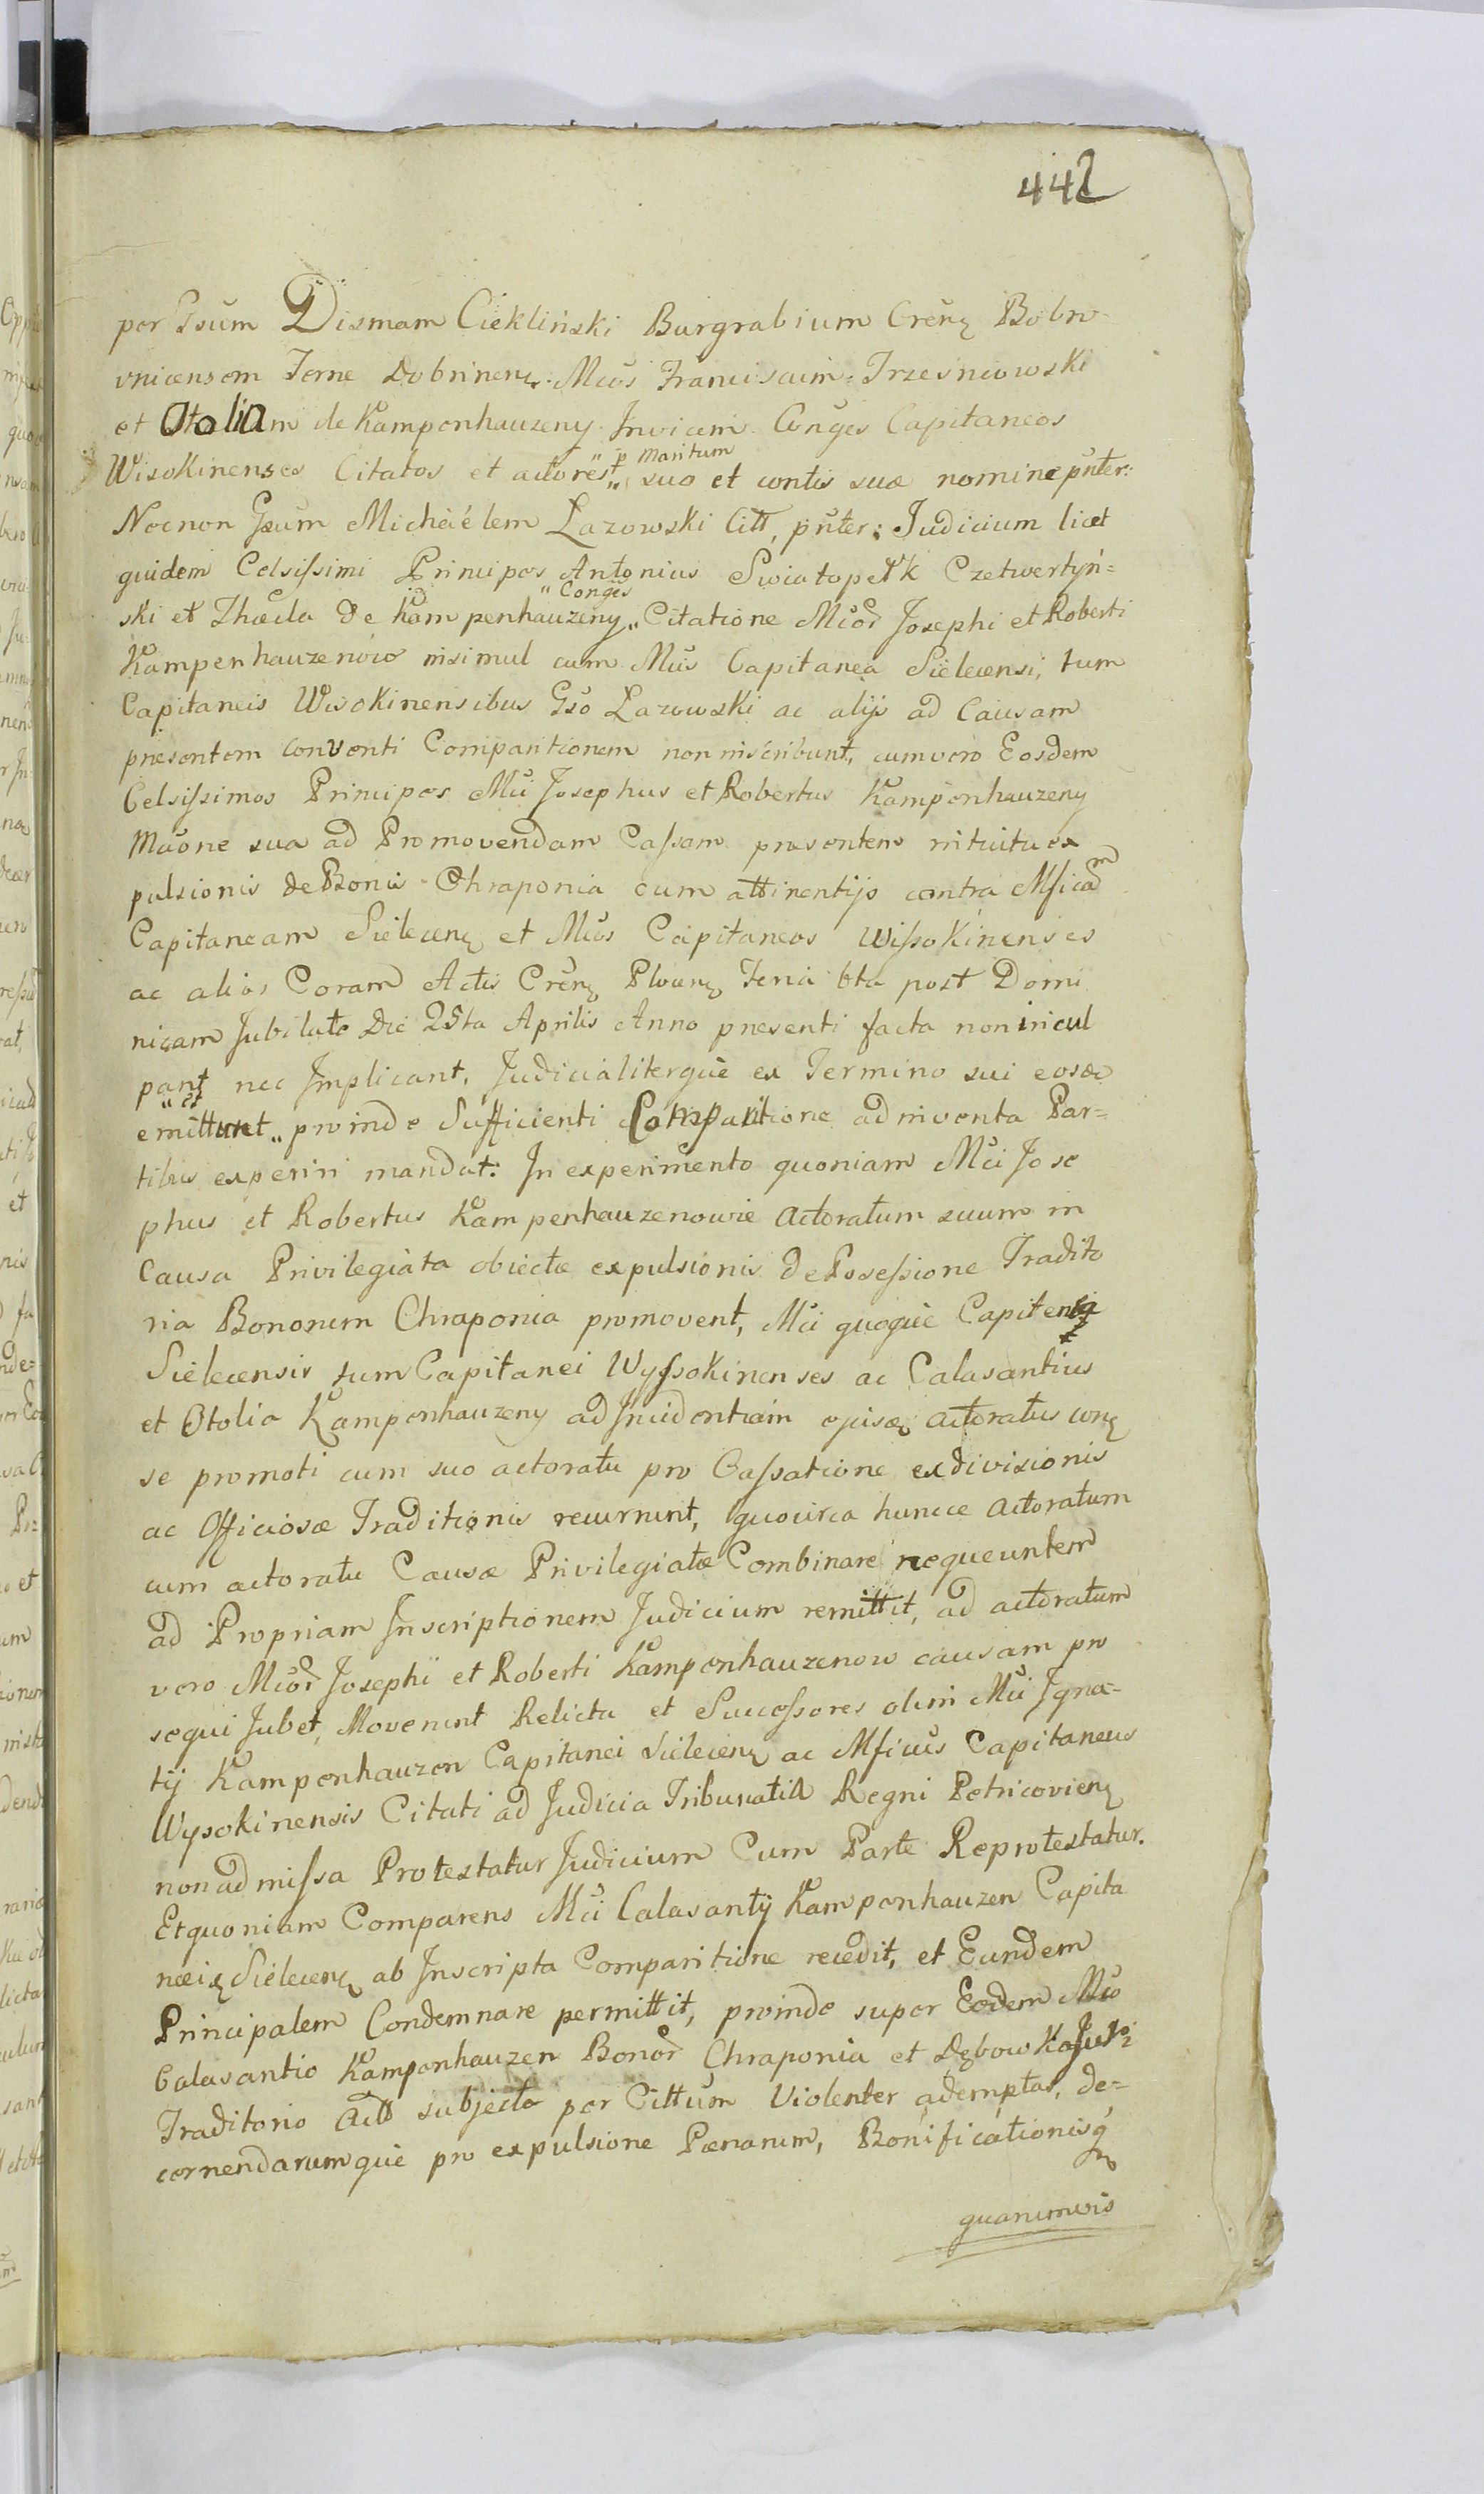 442
per Gsum Dismam Ciekliński Burgrabium Cren̄ȩ Bobro-
vnicensem Terræ Dobrinenȩ Mcos Franciscum Trzesniowski
et Otoliam de Kampenhauzeny Invicem Conges Capitaneos
" p Maritum
Wisokinenses Citatos et actores " suo et contis suæ nomine pn̄ter:
Necnon Gsum Michäelem Lazowski Citt, pn̄ter: Judicium licet
quidem Celsissimi Principes Antonius Swiatopełk Czetwertyń=
" Conges
ski et Thecla De Kampenhauzeny " Citatione Mcor Josephi et Roberti
Kampenhauzenow insimul cum Mcis Capitanea Sielecensi, tum
Capitaneis Wisokinensibus Gso Lazowski ac alijs ad Causam
presentem conventi Comparitionem non inscribunt, cum vero Eosdem
Celsissimos Principes Mci Josephus et Robertus Kampenhauzeny
Mtione sua ad Promovendam Cassam præsentem intuitu ex
pulsionis de Bonis Chraponia cum attinentijs contra Mficam
Capitaneam Sielecenȩ et Mcos Capitaneos Wissokinenses
ac alios Coram Actis Crenȩ Plocenȩ Feria 6ta post Domi
nicam Jubilate Die 25ta Aprilis Anno presenti facta non incul
pant nec Implicant, Judicialiterque ex Termino sui eosdæ
" et
emittunt " proinde Sufficienti Comparitione adinventa Par=
tibus experiri mandat: In experimento quoniam Mci Jose
phus et Robertus Kampenhauzenowie actoratum suum in
Causa Privilegiata obiectæ expulsionis de Possessione Tradito
ria Bonorum Chraponia promovent, Mci quoque Capitenea
Sielecensis tum Capitanei Wyssokinenses ac Calasantius
et Otolia Kampenhauzeny ad Incidentiam ejusdȩ actoratus conȩ
se promoti cum suo actoratu pro Cassatione exdivisionis
ac Officiosæ Traditionis recurrunt, quocirca huncce actoratum
cum actoratu Causæ Privilegiatæ Combinare nequeuntem
ad Propriam Inscriptionem Judicium remittit, ad actoratum
vero Mcor Josephi et Roberti Kampenhauzenow causam pro
sequi Jubet, Moverunt Relicta et Successores olim Mci Igna-
tij Kampenhauzen Capitanei Sielecenȩ ac Mficus Capitaneus
Wysokinensis Citati ad Judicia Tribunalia Regni Petricovienȩ
non admissa Protestatur Judicium Cum Parte Reprotestatur.
Et quoniam Comparens Mci Calasantij Kampenhauzen Capita
neiȩ Sielecenȩ ab Inscripta Comparitione recedit, et Eundem
Principalem Condemnare permittit, proinde super Eodem Mco
Calasantio Kampenhauzen Bonor Chraponia et Dębowka Juri
Traditorio Actt subjecto per Cittum Violenter ademptas, de=
cernendarumque pro expulsione Pænarum, Bonificationisq́
quarumvis